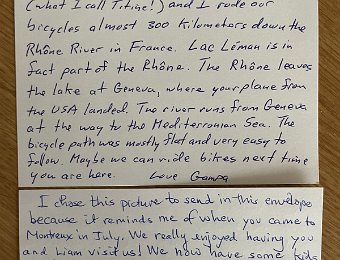 (what I call Titine!) and I rode our
bicycles almost 300 kilometers down the
Rhône River in France. Lac Léman is in
fact part of the Rhône. The Rhône leaves
the lake at Geneva, where your plane from
the USA landed. The river runs from Geneva
at the way to the Mediterranean Sea. The
bicycle path was mostly flat and very easy to
follow. Maybe we can ride bikes next time
you are here. Love Gampa
I chose this picture to send in this envelope
because it reminds me of when you came to
Montreux in July. We really enjoyed having you
and Liam visit us! We now have some kids